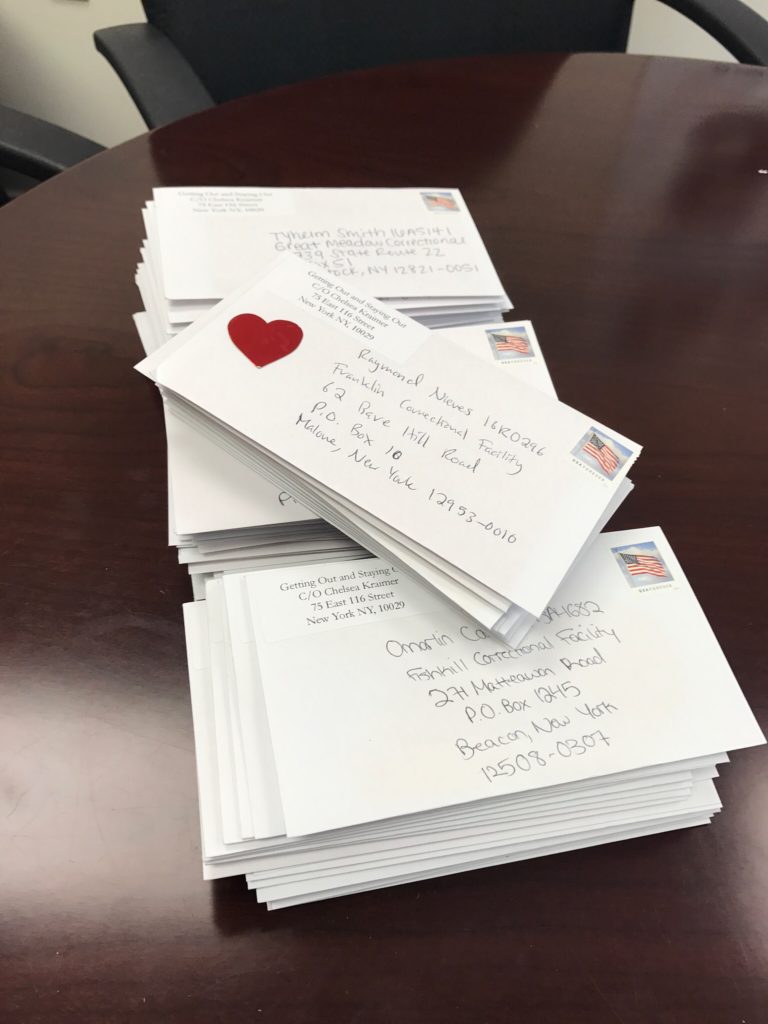 Getting Out and Staying Out
C/O Chelsea Kraimer
75 East 116 Street
New York NY, 10029
Tyheim Smith 16A5141
Great Meadow Correctional
739 State Route 22
51
NY 12821-0051
Getting Out and Staying Out
C/O Chelsea Kraimer
75 East 116 Street
New York NY, 10029
Raymond Nieves 16R0296
Franklin Correctional Facility
62 Bare Hill Road
P.O. Box 10
Malone, New York 12953-0010
Getting Out and Staying
C/O Chelsea Kraimer
75 East 116 Street
New York NY, 10029
Omarlin
Fishkill Correctional Facility
271 Matteawan Road
P.O. Box 1245
Beacon, New York
12508-0307